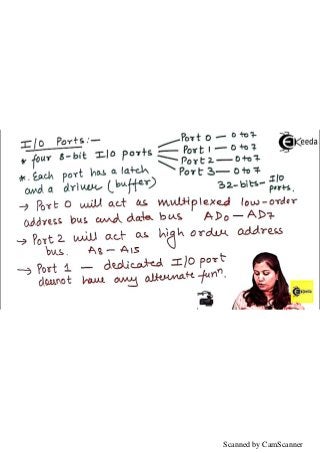 I/O Ports:—
* four 8-bit I/O ports
Port 0 — 0 to 7
Port 1 — 0 to 7
Port 2 — 0 to 7
Port 3 — 0 to 7
32-bits— I/O ports.
*. Each port has a latch
and a driver (buffer)
→ Port 0 will act as multiplexed low-order
address bus and data bus AD0 — AD7
→ Port 2 will act as high order address
bus. A8 — A15
→ Port 1 — dedicated I/O port
doesnot have any alternate funⁿ.
Keeda
Scanned by CamScanner